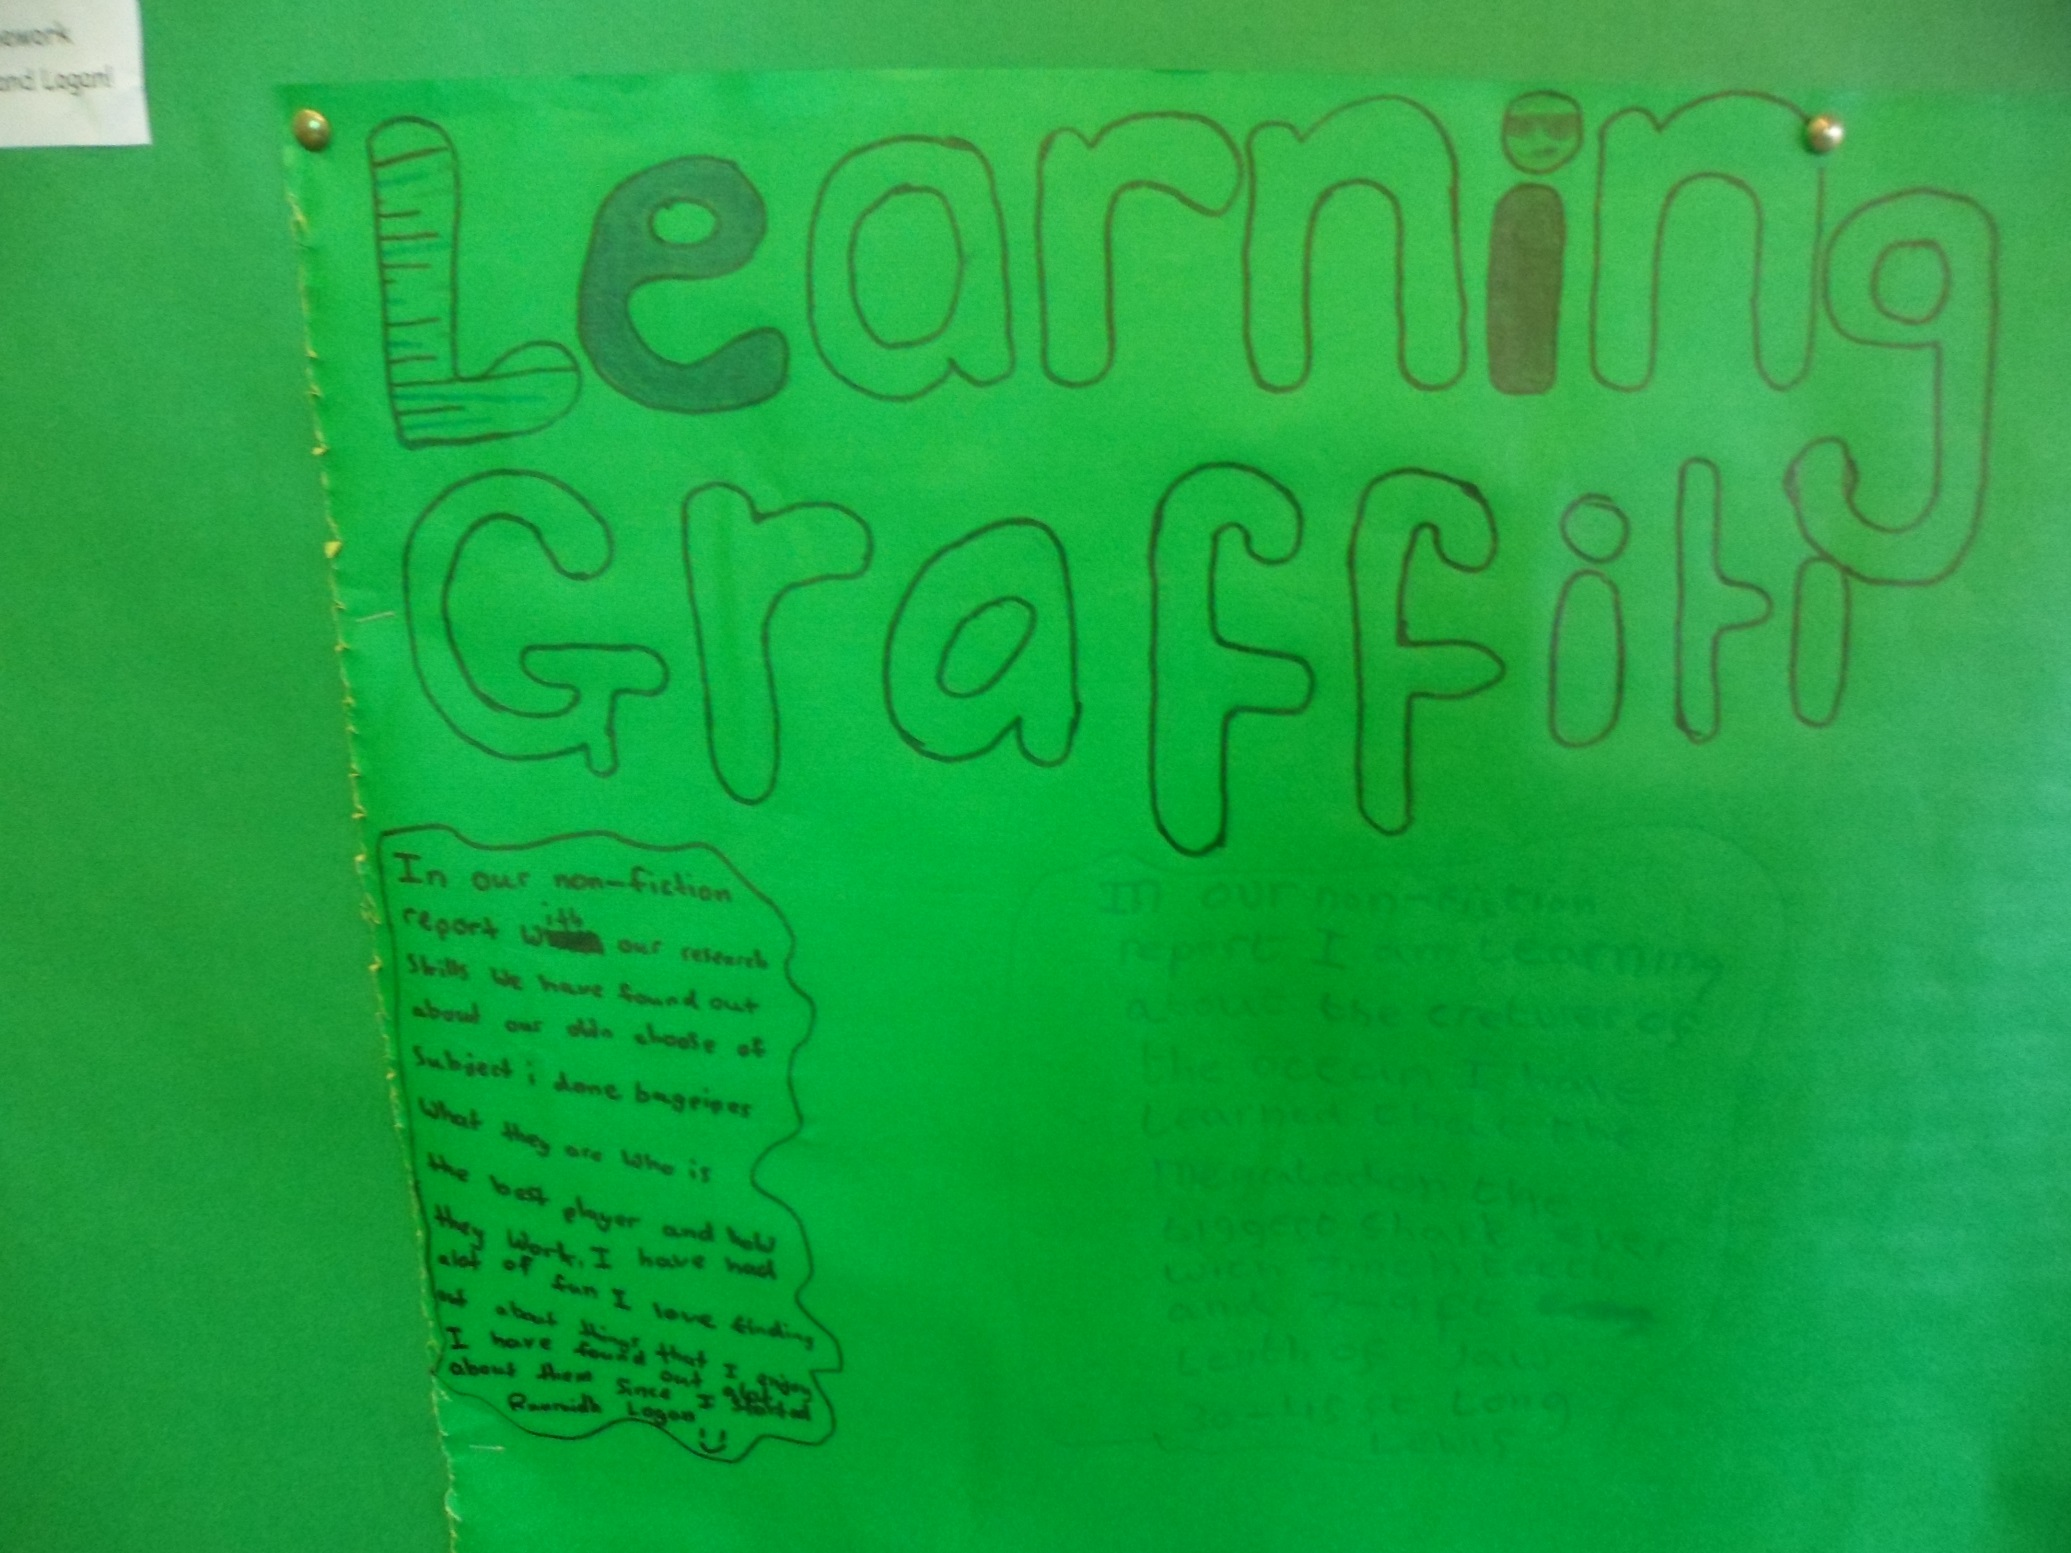 ework
and Logan!
Learning
Graffiti
In our non-fiction
report with our research
skills we have found out
about our own choose of
subject i done bagpipes
What they are who is
the best player and how
they work. I have had
alot of fun I love finding
out about things that I enjoy
I have found out alot
about them since I started
Ruaraidh Logan
In our non-fiction
report I am Learning
about the cretures of
the ocean I have
Learned the
megalodon the
biggest shark ever
with 7inch teeth
and 7-9ft
Lenth of Jaw
ft Long
Lewis